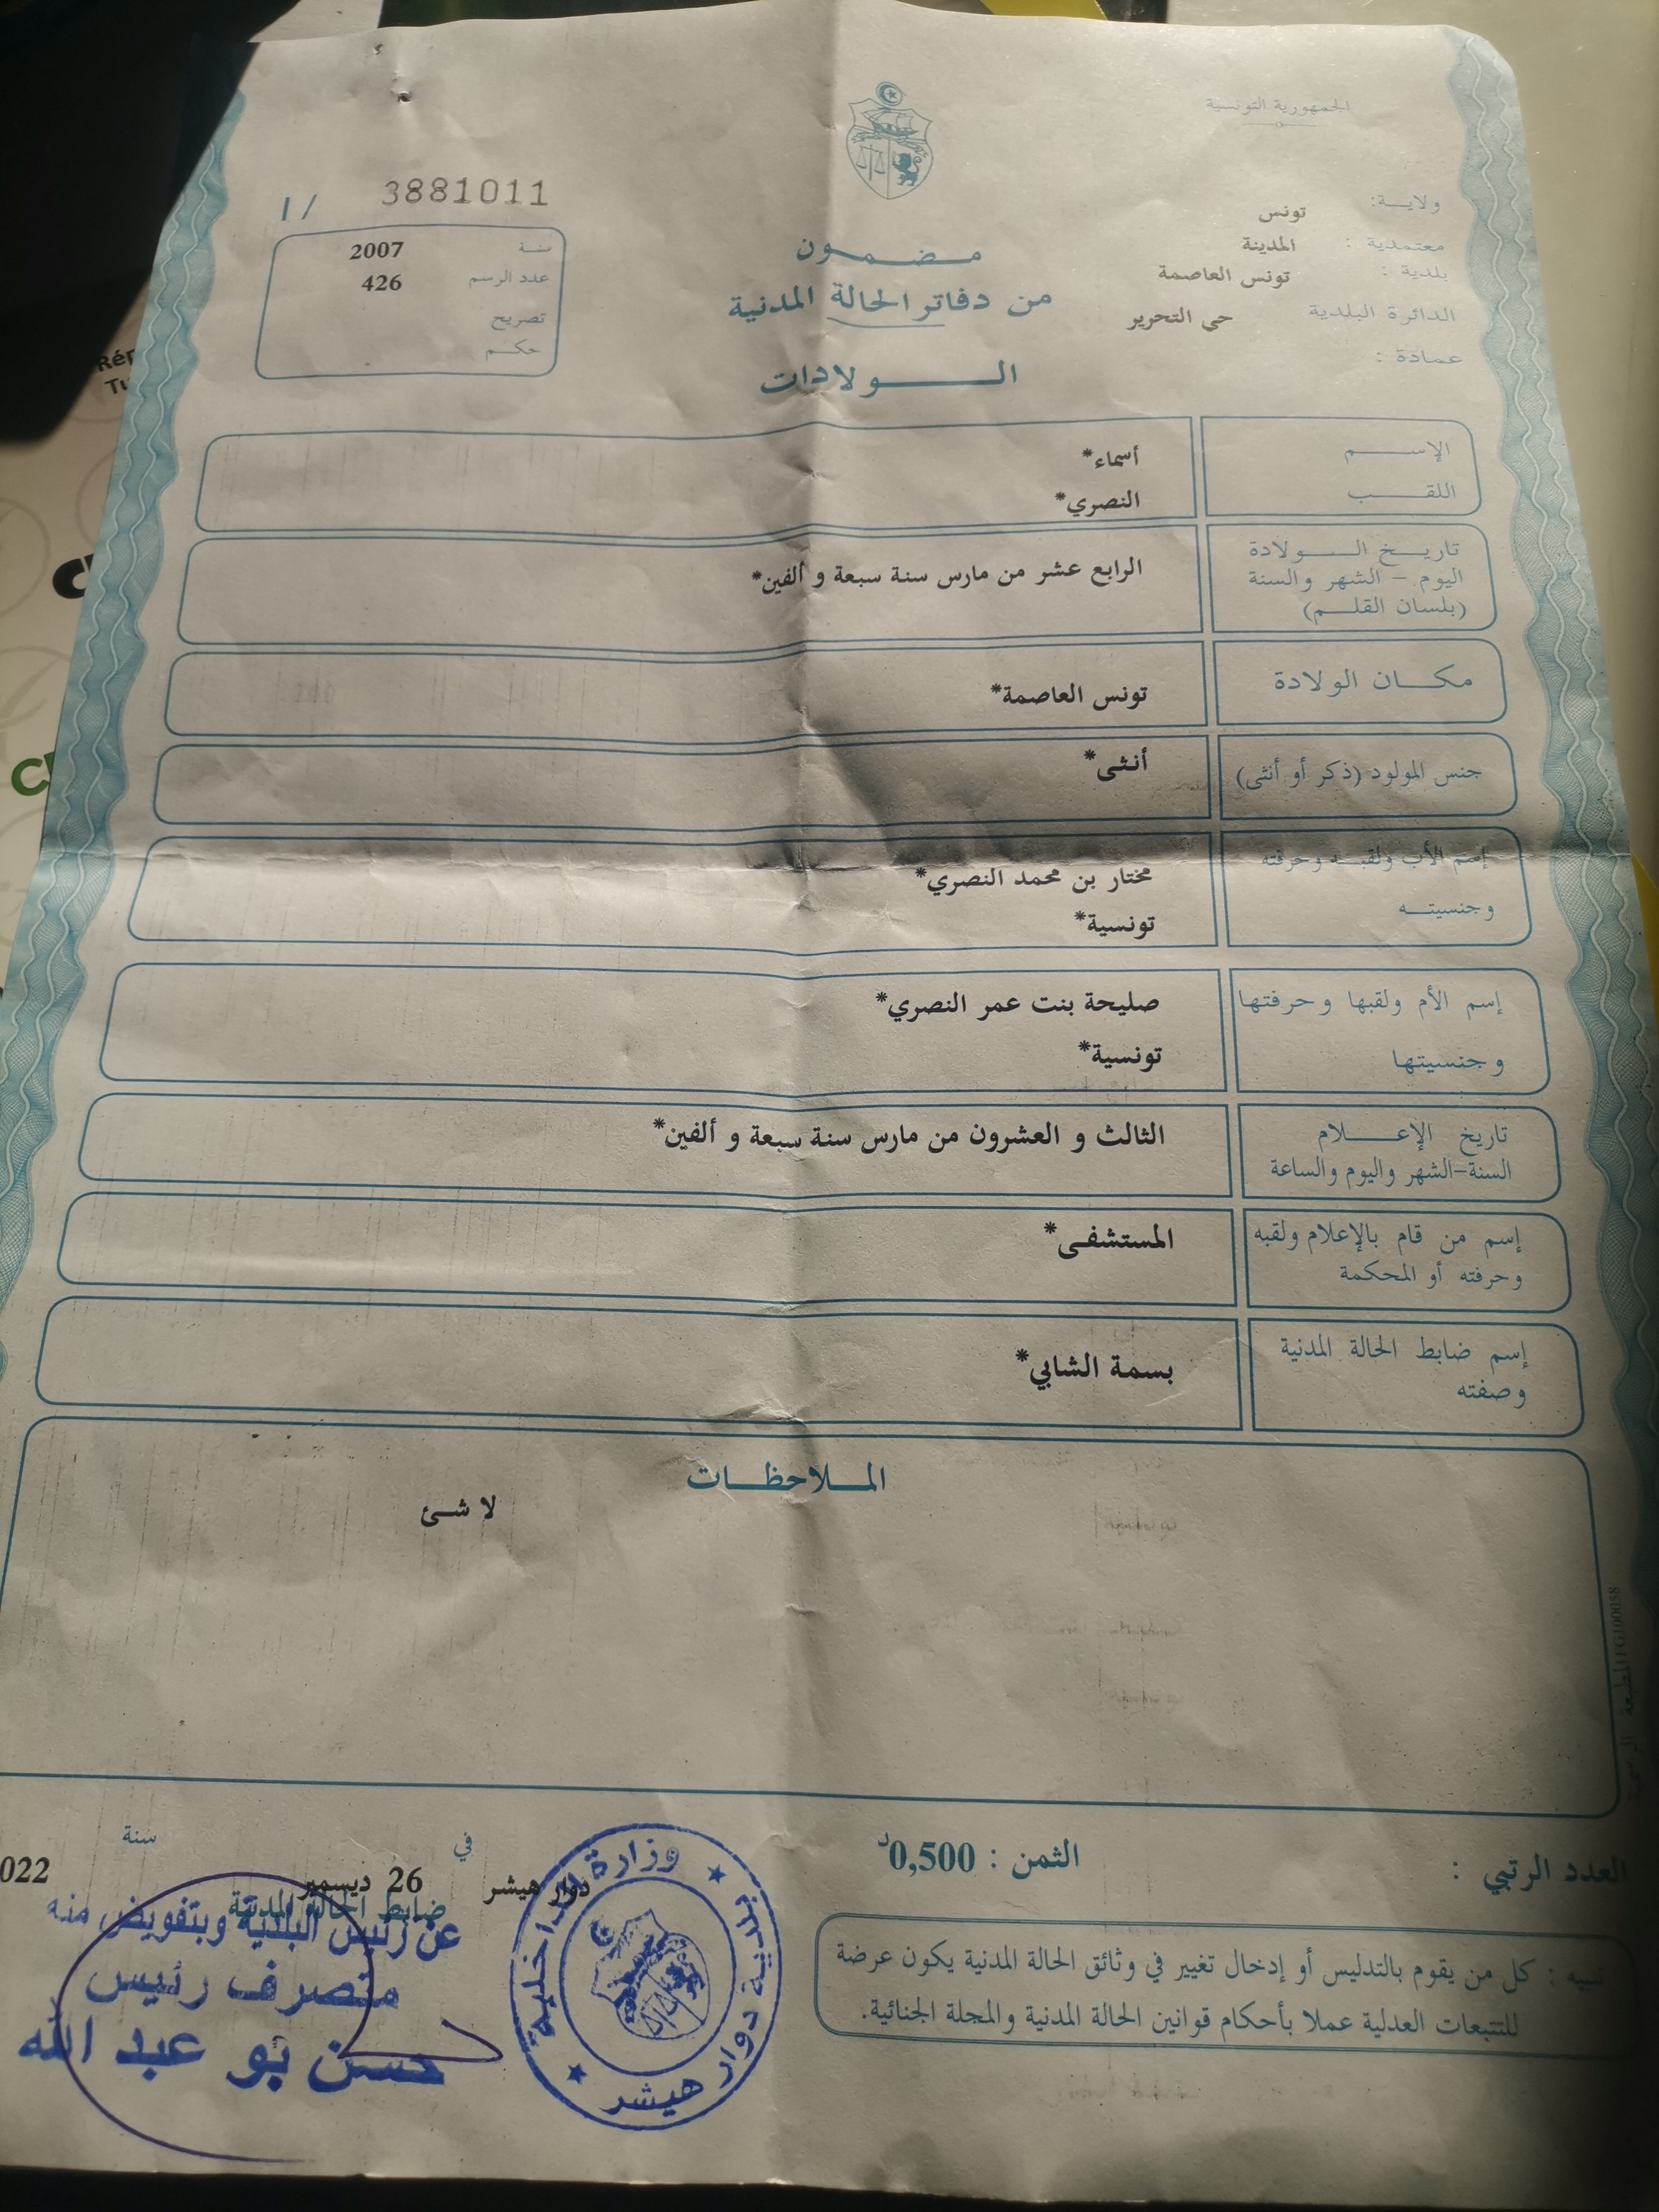 الجمهورية التونسية
ولايـة: تونس
معتمدية : المدينة
بلدية : تونس العاصمة
الدائرة البلدية حي التحرير
عمادة :
مـضـمـون
من دفاتر الحالة المدنية
الـــولادات
3881011 / 1
سنة 2007
عدد الرسم 426
تصريح
حكـم
الإســـم أسماء*
اللقـــب النصري*
تاريـخ الــولادة
اليوم – الشهر والسنة
(بلسان القلـم)
الرابع عشر من مارس سنة سبعة و ألفين*
مكـان الولادة تونس العاصمة*
جنس المولود (ذكر أو أنثى) أنثى*
إسم الأب ولقبـه وحرفته
وجنسيتـه
مختار بن محمد النصري*
تونسية*
إسم الأم ولقبها وحرفتها
وجنسيتها
صليحة بنت عمر النصري*
تونسية*
تاريخ الإعــلام
السنة-الشهر واليوم والساعة
الثالث و العشرون من مارس سنة سبعة و ألفين*
إسم من قام بالإعلام ولقبه
وحرفته أو المحكمة
المستشفى*
إسم ضابط الحالة المدنية
وصفته
بسمة الشابي*
المــلاحظـات
لا شئ
العدد الرتبي :
الثمن : 0,500د
دوار هيشر في 26 ديسمبر سنة 022
ضابط الحالة المدنية
عن رئيس البلدية وبتفويض منه
متصرف رئيس
حسن بو عبد الله
وزارة الداخلية
بلدية دوار هيشر
تنبيه : كل من يقوم بالتدليس أو إدخال تغيير في وثائق الحالة المدنية يكون عرضة
للتتبعات العدلية عملا بأحكام قوانين الحالة المدنية والمجلة الجنائية.